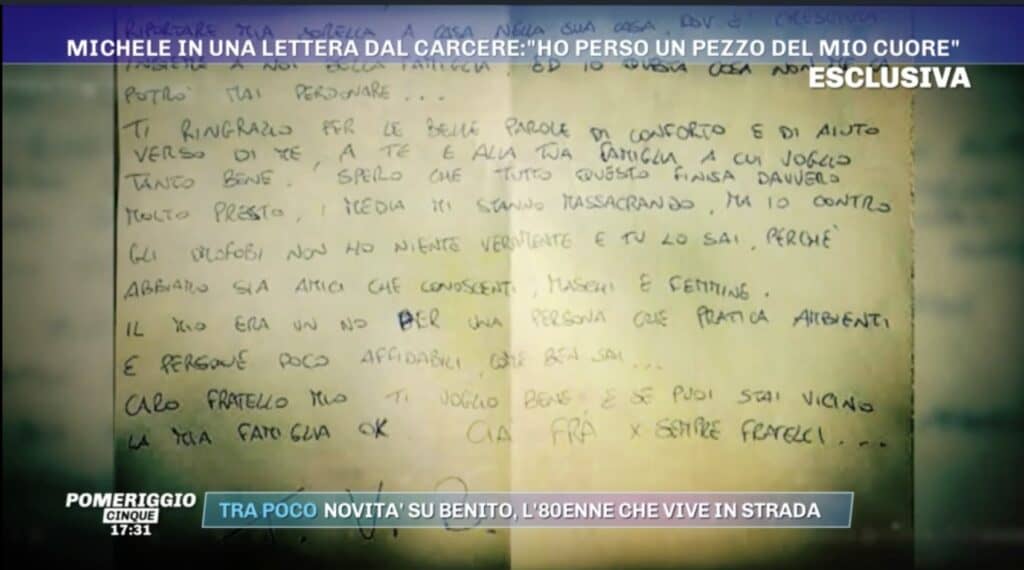 RIPORTARE MIA SORELLA A CASA NELLA SUA CASA, DOV'È CRESCIUTA
MICHELE IN UNA LETTERA DAL CARCERE:"HO PERSO UN PEZZO DEL MIO CUORE"
INSIEME A NOI DELLA FAMIGLIA ED IO QUESTA COSA NON ME LA
ESCLUSIVA
POTRÒ MAI PERDONARE...
TI RINGRAZIO PER LE BELLE PAROLE DI CONFORTO E DI AIUTO
VERSO DI ME, A TE E ALLA TUA FAMIGLIA A CUI VOGLIO
TANTO BENE. SPERO CHE TUTTO QUESTO FINISA DAVVERO
MOLTO PRESTO, I MEDIA MI STANNO MASSACRANDO, MA IO CONTRO
GLI NON HO NIENTE VERAMENTE E TU LO SAI, PERCHÈ
ABBIAMO SIA AMICI CHE CONOSCENTI, MASCHI E FEMMINE.
IL MIO ERA UN NO PER UNA PERSONA CHE PRATICA AMBIENTI
E PERSONE POCO AFFIDABILI, COME BEN SAI...
CARO FRATELLO MIO TI VOGLIO BENE E SE PUOI STAI VICINO
LA MIA FAMIGLIA OK CIA FRÀ X SEMPRE FRATELLI....
T. V. B.
POMERIGGIO
CINQUE
17:31
TRA POCO NOVITA' SU BENITO, L'80ENNE CHE VIVE IN STRADA